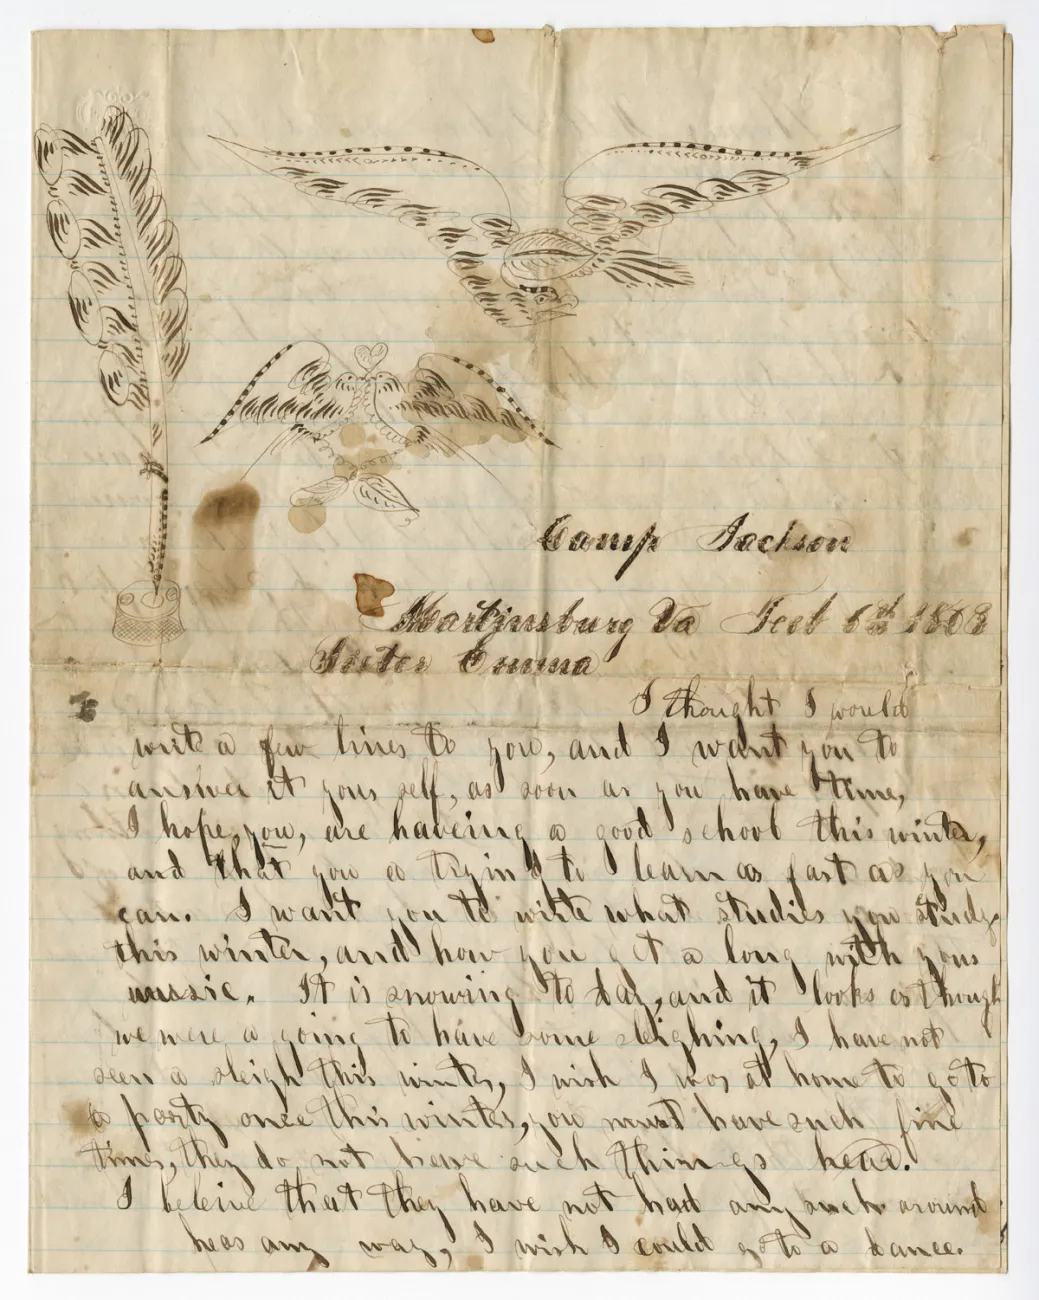 Camp Jackson
Martinsburg Va Feb 6th 1863
Sister Emma
I thought I would
write a few lines to you, and I want you to
answer it your self, as soon as you have time,
I hope, you, are haveing a good school this winter,
and that you a trying to learn as fast as you
can. I want you to write what studies you study
this winter, and how you get a long with your
mussic. It is snowing to day, and it looks as though
we were a going to have some sleighing, I have not
seen a sleigh this winter, I wish I was at home to go to
a party once this winter, you must have such fine
times, they do not have such things hear.
I beleive that they have not had any such around
hear any way, I wish I could go to a dance.